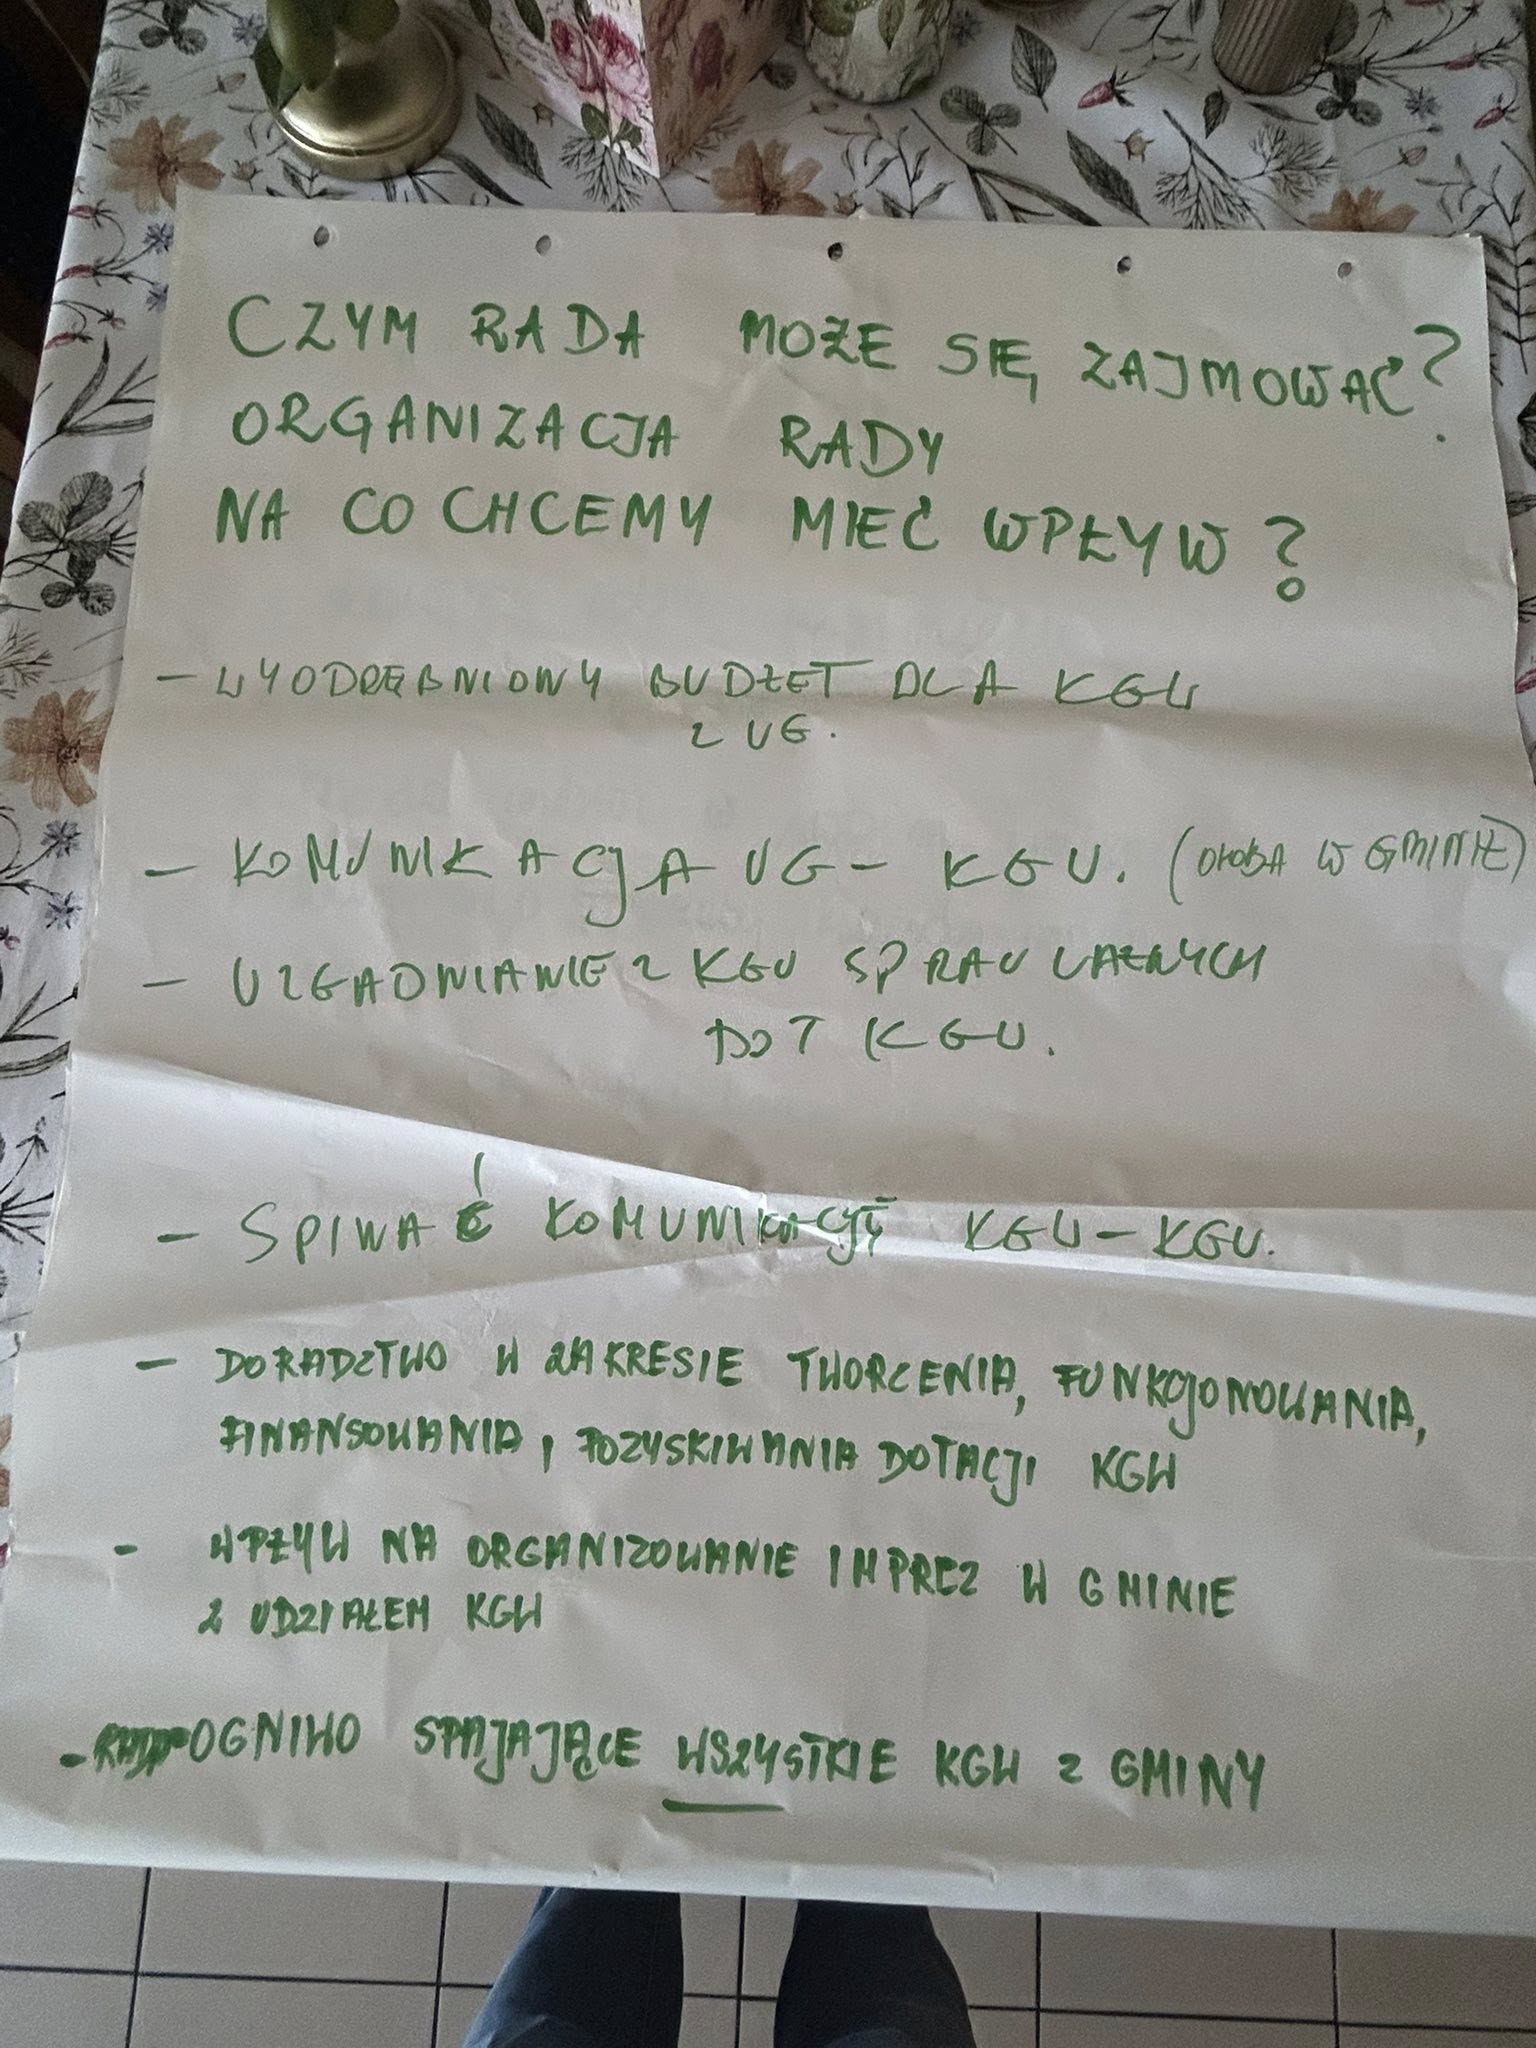 CZYM RADA MOŻE SIĘ ZAJMOWAĆ?
ORGANIZACJA RADY
NA CO CHCEMY MIEĆ WPŁYW?
- WYODRĘBNIONY BUDŻET DLA KGW
Z UG.
- KOMUNIKACJA UG - KGW. (OSOBA W GMINIE)
- UZGADNIANIE Z KGW SPRAW WAŻNYCH
DOT KGW.
- SPIWAĆ KOMUNIKACJĘ KGW - KGW.
- DORADZTWO W ZAKRESIE TWORZENIA, FUNKCJONOWANIA,
FINANSOWANIA, POZYSKIWANIA DOTACJI KGW
- WPŁYW NA ORGANIZOWANIE IMPREZ W GMINIE
Z UDZIAŁEM KGW
- OGNIWO SPAJAJĄCE WSZYSTKIE KGW Z GMINY